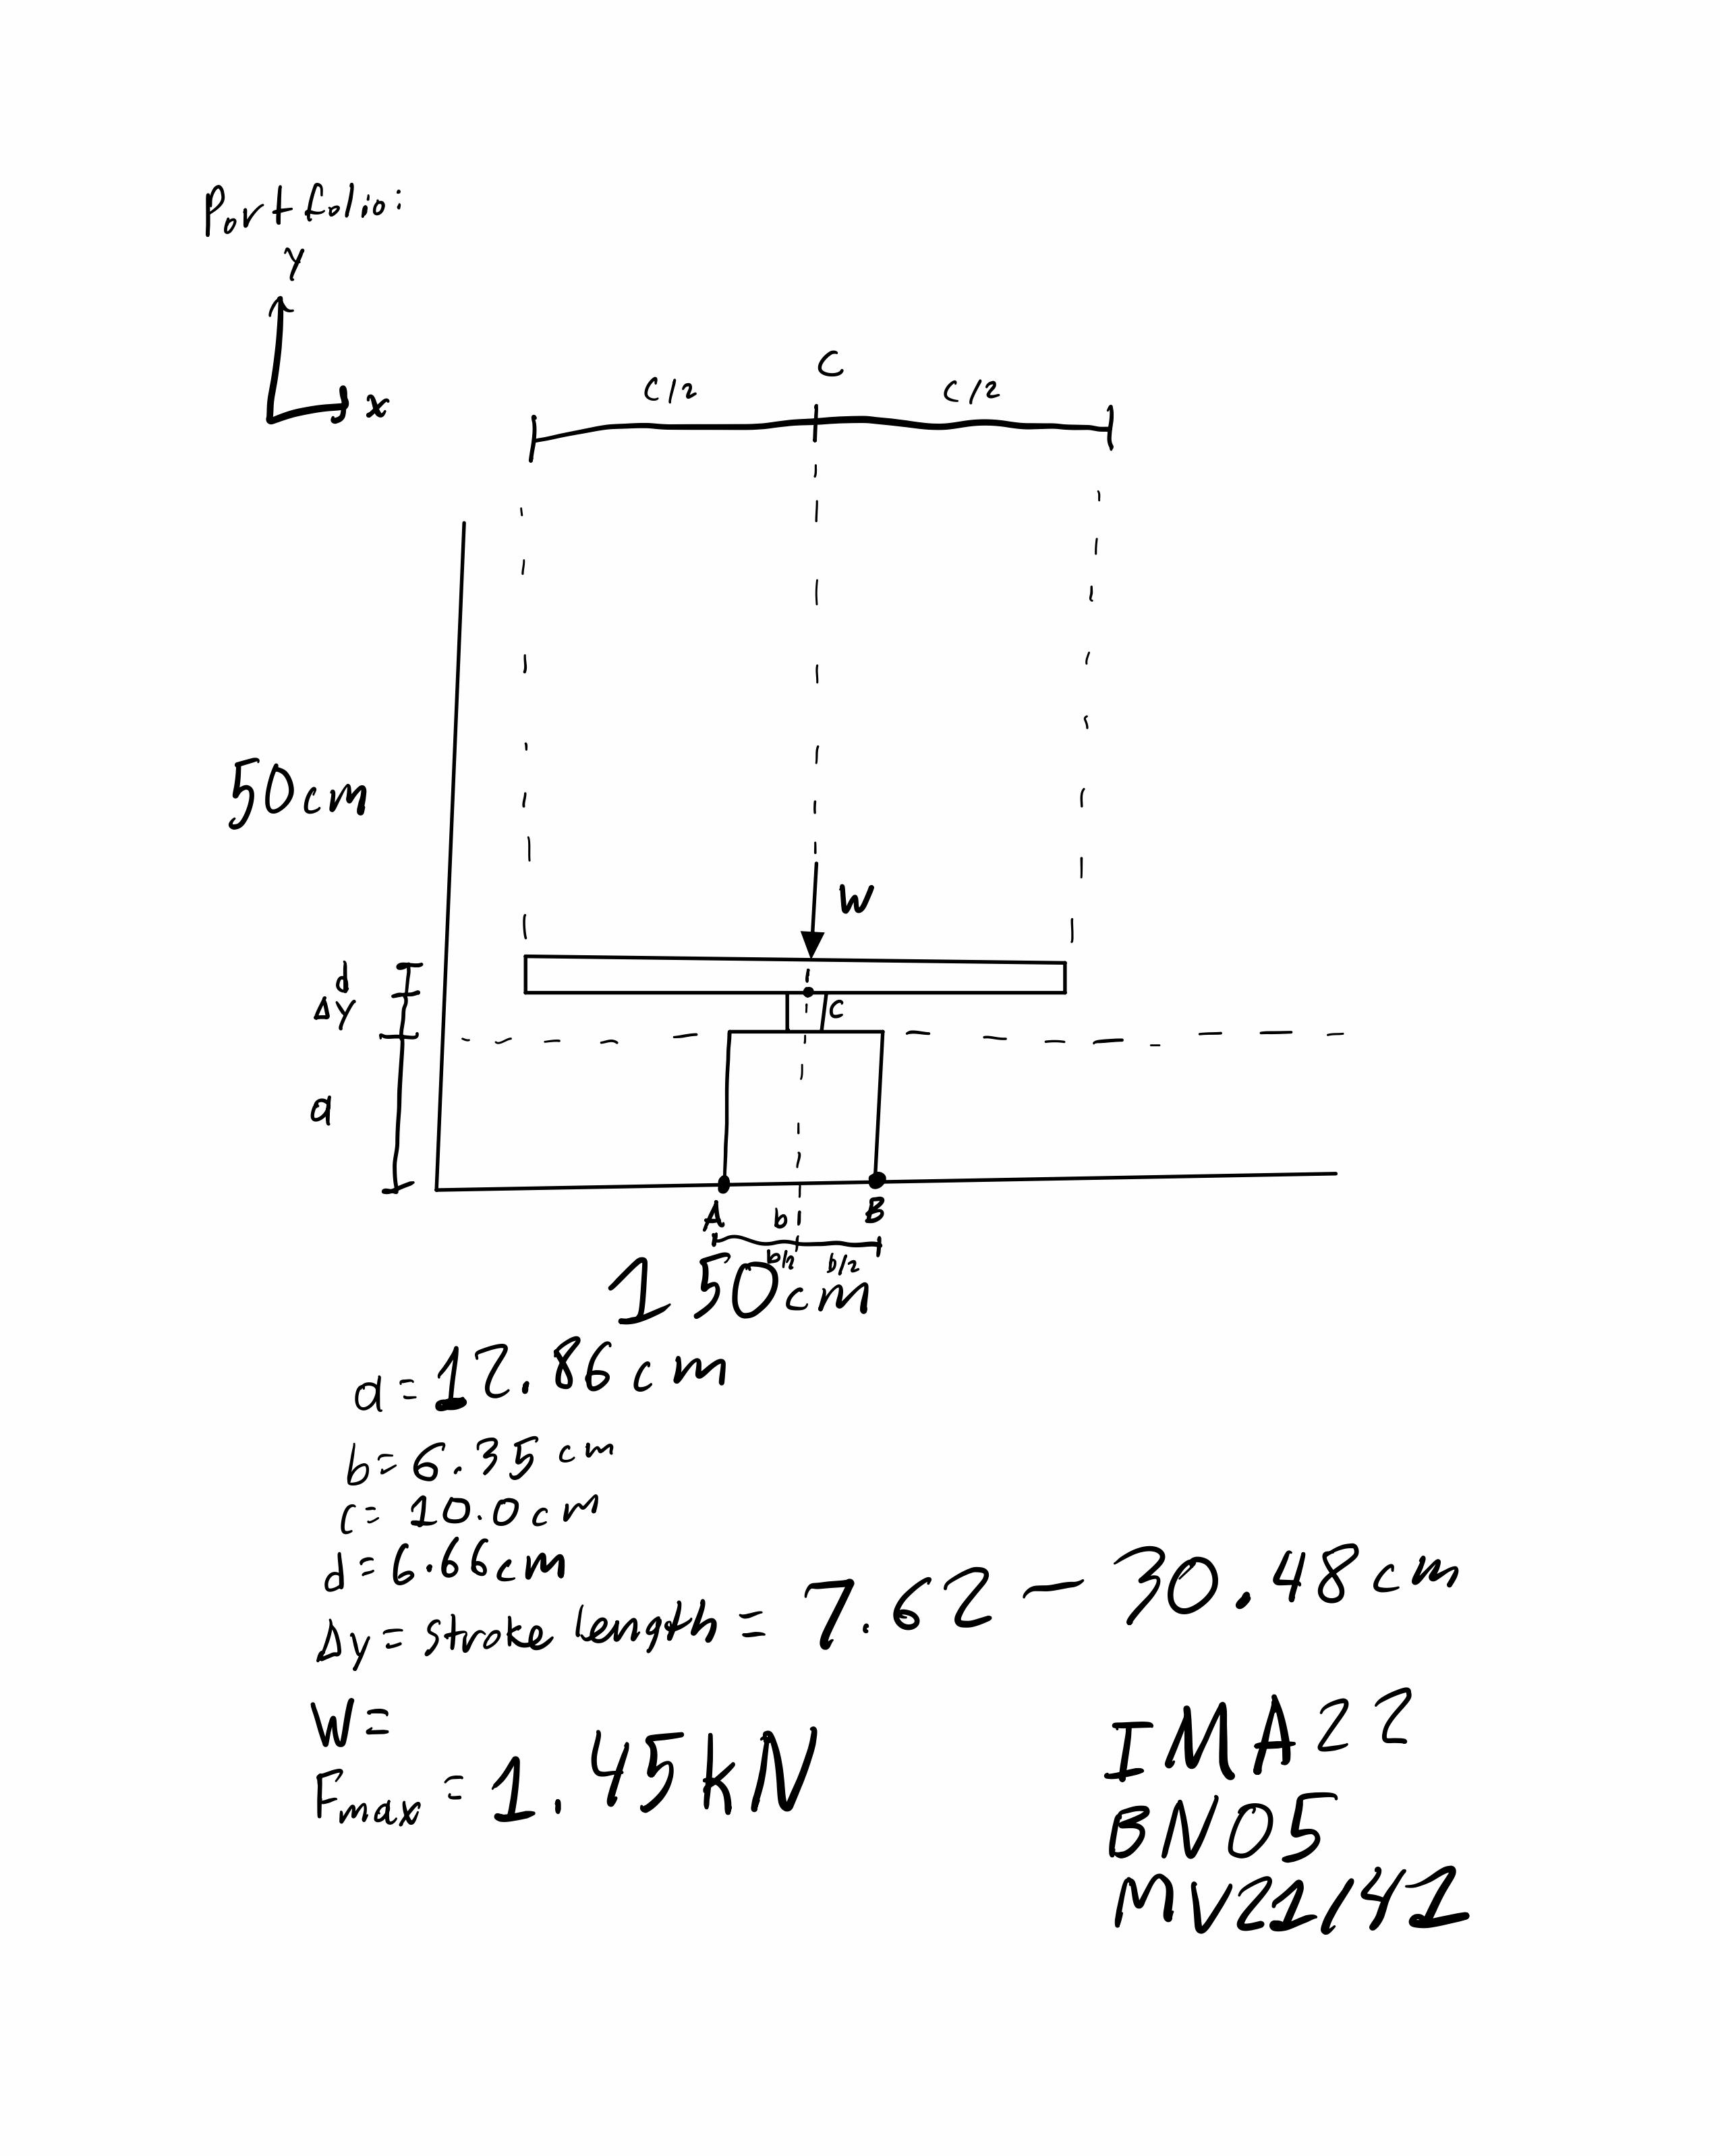 Portfolio:
Y
x
C
c/2
c/2
50cm
W
d
Δy
c
a
A
b
B
b/2
b/2
150cm
a=12.86cm
b=6.35cm
c=10.0cm
d=6.66cm
Δy=stroke length=7.62-30.48cm
W=
Fmax=1.45kN
IMA22
BN05
MV21/41